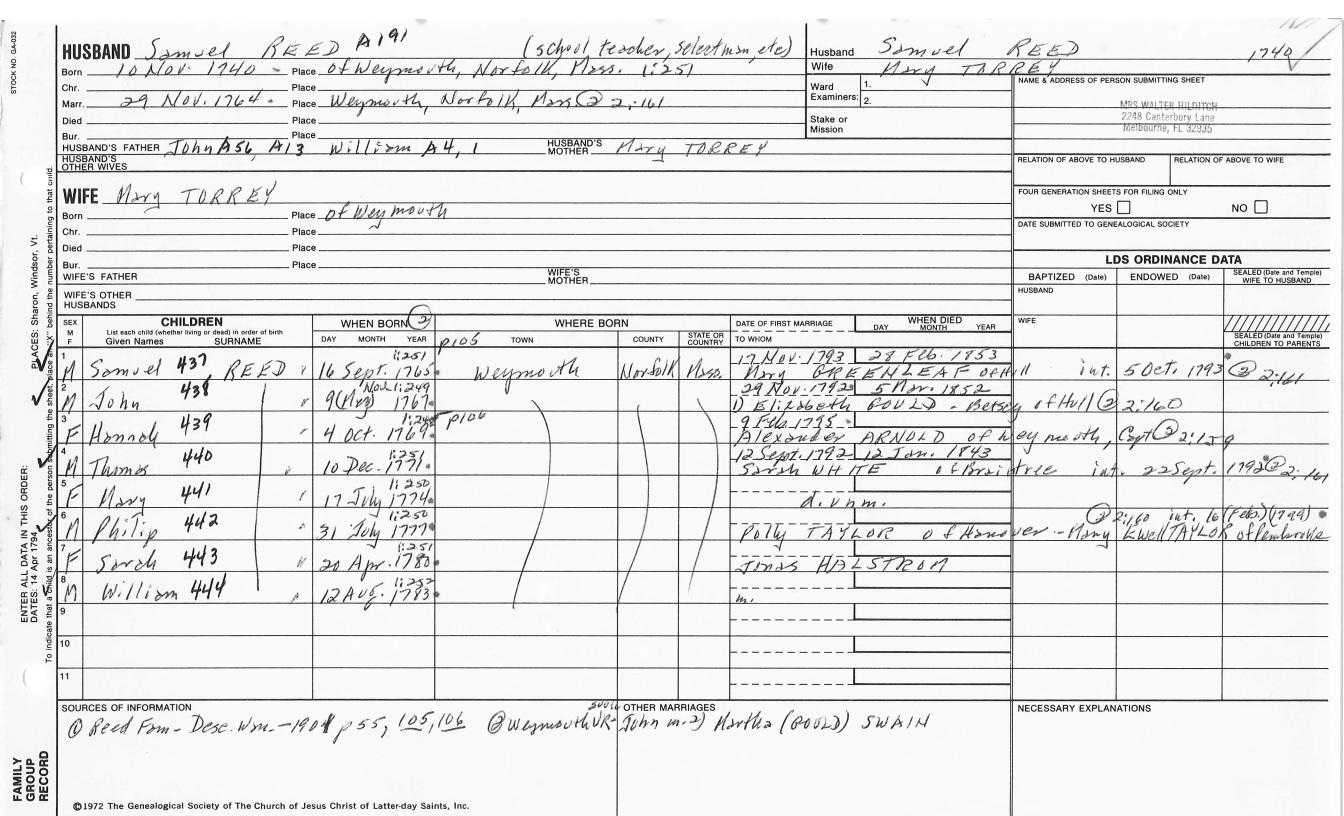 STOCK NO. GA-032
HUSBAND Samuel REED A191 (school teacher, selectman, etc)
Born 10 Nov. 1740 Place of Weymouth, Norfolk, Mass. 1:251
Chr. Place
Marr. 29 Nov. 1764 Place Weymouth, Norfolk, Mass ② 2:161
Died Place
Bur. Place
HUSBAND'S FATHER John A56, A13 William A4, 1 HUSBAND'S MOTHER Mary TORREY
HUSBAND'S OTHER WIVES
Husband Samuel REED 1740
Wife Mary TORREY
Ward Examiners: 1.
2.
Stake or Mission
NAME & ADDRESS OF PERSON SUBMITTING SHEET
MRS WALTER HILDITCH
2248 Canterbury Lane
Melbourne, FL 32935
RELATION OF ABOVE TO HUSBAND RELATION OF ABOVE TO WIFE
FOUR GENERATION SHEETS FOR FILING ONLY
YES NO
DATE SUBMITTED TO GENEALOGICAL SOCIETY
WIFE Mary TORREY
Born Place of Weymouth
Chr. Place
Died Place
Bur. Place
WIFE'S FATHER WIFE'S MOTHER
WIFE'S OTHER HUSBANDS
LDS ORDINANCE DATA
BAPTIZED (Date) ENDOWED (Date) SEALED (Date and Temple) WIFE TO HUSBAND
HUSBAND
WIFE
SEALED (Date and Temple) CHILDREN TO PARENTS
SEX M F CHILDREN WHEN BORN ② WHERE BORN DATE OF FIRST MARRIAGE WHEN DIED
List each child (whether living or dead) in order of birth
Given Names SURNAME DAY MONTH YEAR p105 TOWN COUNTY STATE OR COUNTRY TO WHOM DAY MONTH YEAR
1 1:251 17 Nov. 1793 28 Feb. 1853
M Samuel 437 REED 16 Sept. 1765 Weymouth Norfolk Mass. Mary GREENLEAF of Hull int. 5 Oct. 1793 ② 2:161
2 1:249 29 Nov. 1792 5 Mar. 1852
M John 438 1767 1) Elizabeth GOULD - Betsey of Hull ② 2:160
3 p106 9 Feb. 1795
F Hannah 439 4 Oct. 1769 Alexander ARNOLD of Weymouth, Capt ② 2:159
4 1:251 12 Sept. 1792 12 Jan. 1843
M Thomas 440 10 Dec. 1771 Sarah WHITE of Braintree int. 22 Sept. 1792 ② 2:161
5 1:250
F Mary 441 17 July 1774 d. unm.
6 1:250 ② 2:160 int. 16 (Feb.) (1799)
M Philip 442 31 July 1777 Polly TAYLOR of Hanover - Mary Ewell TAYLOR of Pembroke
7 1:251
F Sarah 443 20 Apr. 1780 Jonas HALSTROM
8 1:252
M William 444 12 Aug. 1783 m.
9
10
11
SOURCES OF INFORMATION
① Reed Fam - Desc. Wm. - 1901 p 55, 105, 106 ② Weymouth VR
OTHER MARRIAGES
John m. 2) Martha (GOULD) SWAIN
NECESSARY EXPLANATIONS
©1972 The Genealogical Society of The Church of Jesus Christ of Latter-day Saints, Inc.
ENTER ALL DATA IN THIS ORDER:
DATES: 14 Apr 1794 PLACES: Sharon, Windsor, Vt.
To indicate that a child is an ancestor of the person submitting the sheet, place an "X" behind the number pertaining to that child.
FAMILY
GROUP
RECORD